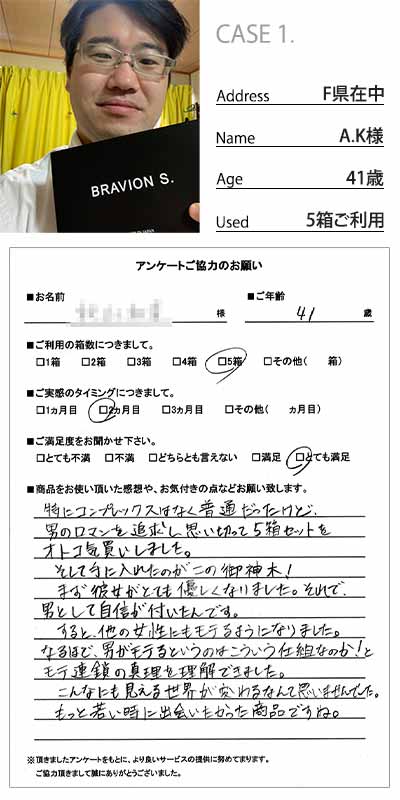 CASE 1.
Address F県在中
Name A.K様
Age 41歳
Used 5箱ご利用
BRAVION S.
アンケートご協力のお願い
■お名前 ■ご年齢
様 41 歳
■ご利用の箱数につきまして。
□1箱 □2箱 □3箱 □4箱 □5箱 □その他( 箱)
■ご実感のタイミングにつきまして。
□1ヵ月目 □2ヵ月目 □3ヵ月目 □その他( ヵ月目)
■ご満足度をお聞かせ下さい。
□とても不満 □不満 □どちらとも言えない □満足 □とても満足
■商品をお使い頂いた感想や、お気付きの点などお願い致します。
特にコンプレックスはなく普通だったけど、
男のロマンを追求し思い切って5箱セットを
オトコ気買いしました。
そして手に入れたのがこの御神木!
まず彼女がとても優しくなりました。それで、
男として自信が付いたんです。
すると、他の女性にもモテるようになりました。
なるほど、男がモテるというのはこういう仕組なのか!と
モテ連鎖の真理を理解できました。
こんなにも見える世界が変わるなんて思いませんでした。
もっと若い時に出会いたかった商品ですね。
※頂きましたアンケートをもとに、より良いサービスの提供に努めてまります。
ご協力頂きまして誠にありがとうございました。